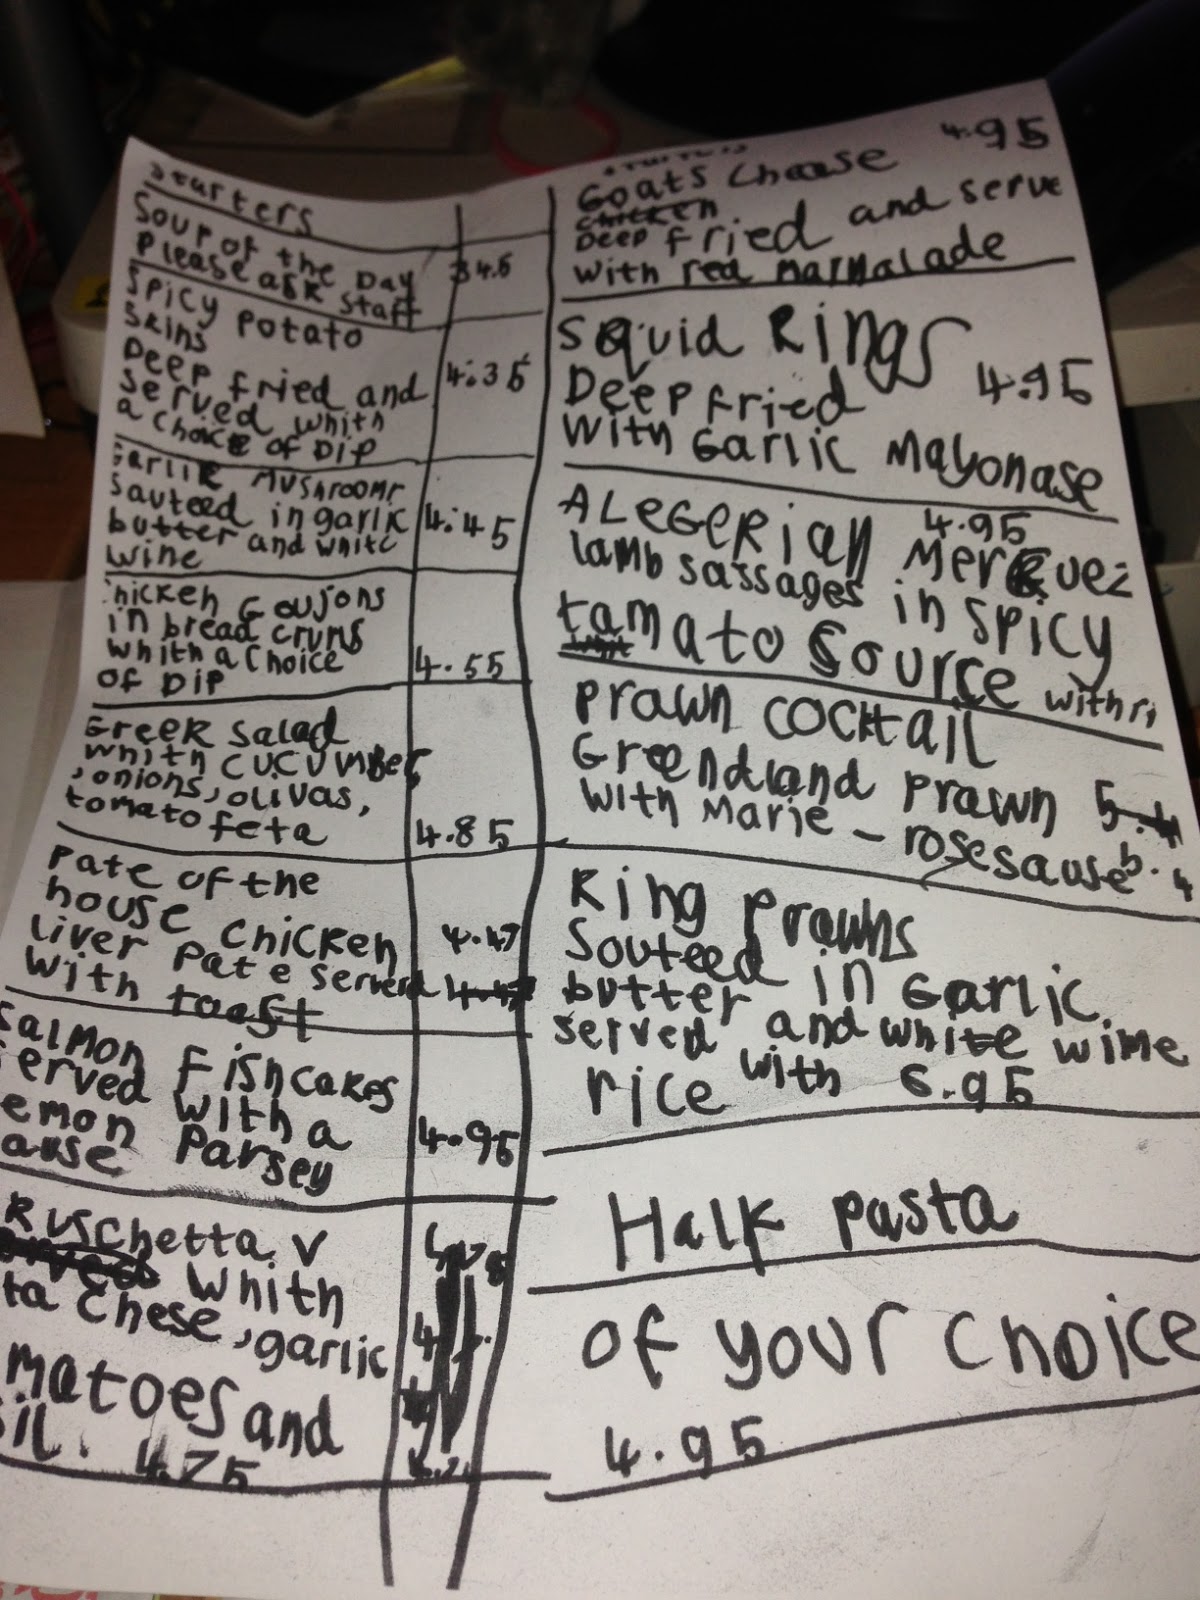 Starters
Soup of the Day
Please ask staff
3.45
Spicy potato
skins
Deep fried and
served whith
a choice of Dip
4.35
Garlik mushrooms
sauteed in garlic
butter and white
wine
4.45
Chicken Goujons
in bread crums
whith a choice
of Dip
4.55
Greek Salad
whith cucumber
,onions, olivas,
tomato feta
4.85
Pate of the
house chicken
liver pate served
with toast
4.47
Salmon Fishcakes
served with a
lemon Parsey
sause
4.95
Bruschetta v
whith
ta chese, garlic
matoes and
sil. 4.75
Goats cheese 4.95
chicken
Deep fried and serve
with red marmalade
Squid Rings
Deep fried 4.95
with Garlic Mayonase
Alegerian Merguez
4.95
lamb sassages in spicy
tamato source with ri
Prawn cocktail
Greendland prawn
with Marie - rose sause
King prawns
Souteed in Garlic
butter and white wime
served with
rice 6.95
Half pasta
of your choice
4.95